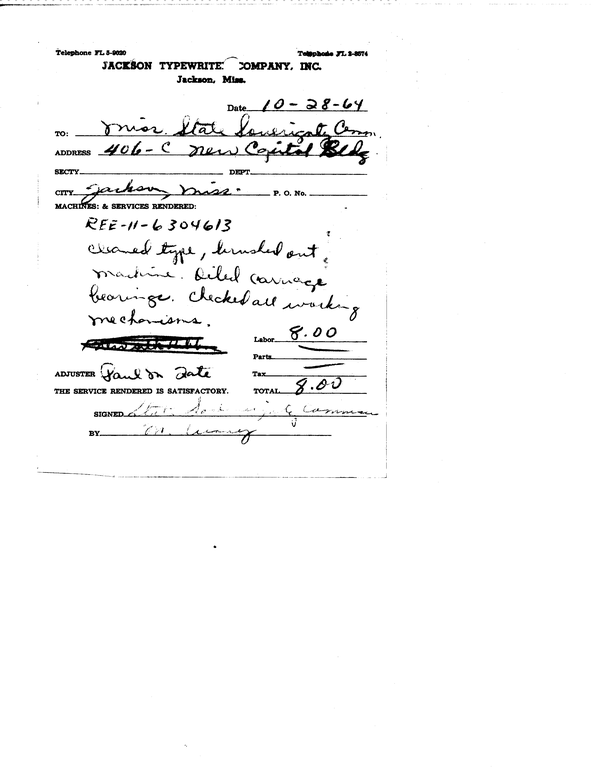 Telephone FL 5-9020 Telephone FL 2-8574
JACKSON TYPEWRITE COMPANY, INC.
Jackson, Miss.
Date 10-28-64
TO: Miss. State Soverignty Comm.
ADDRESS 406-C New Capitol Bldg.
SECTY. DEPT.
CITY Jackson, Miss. P. O. No.
MACHINES: & SERVICES RENDERED:
REE-11-6304613
Cleaned type, brushed out
machine. Oiled carriage
bearings. Checked all working
mechanisms.
Labor 8.00
Parts
ADJUSTER Paul M Tate Tax
THE SERVICE RENDERED IS SATISFACTORY. TOTAL 8.00
SIGNED State
BY